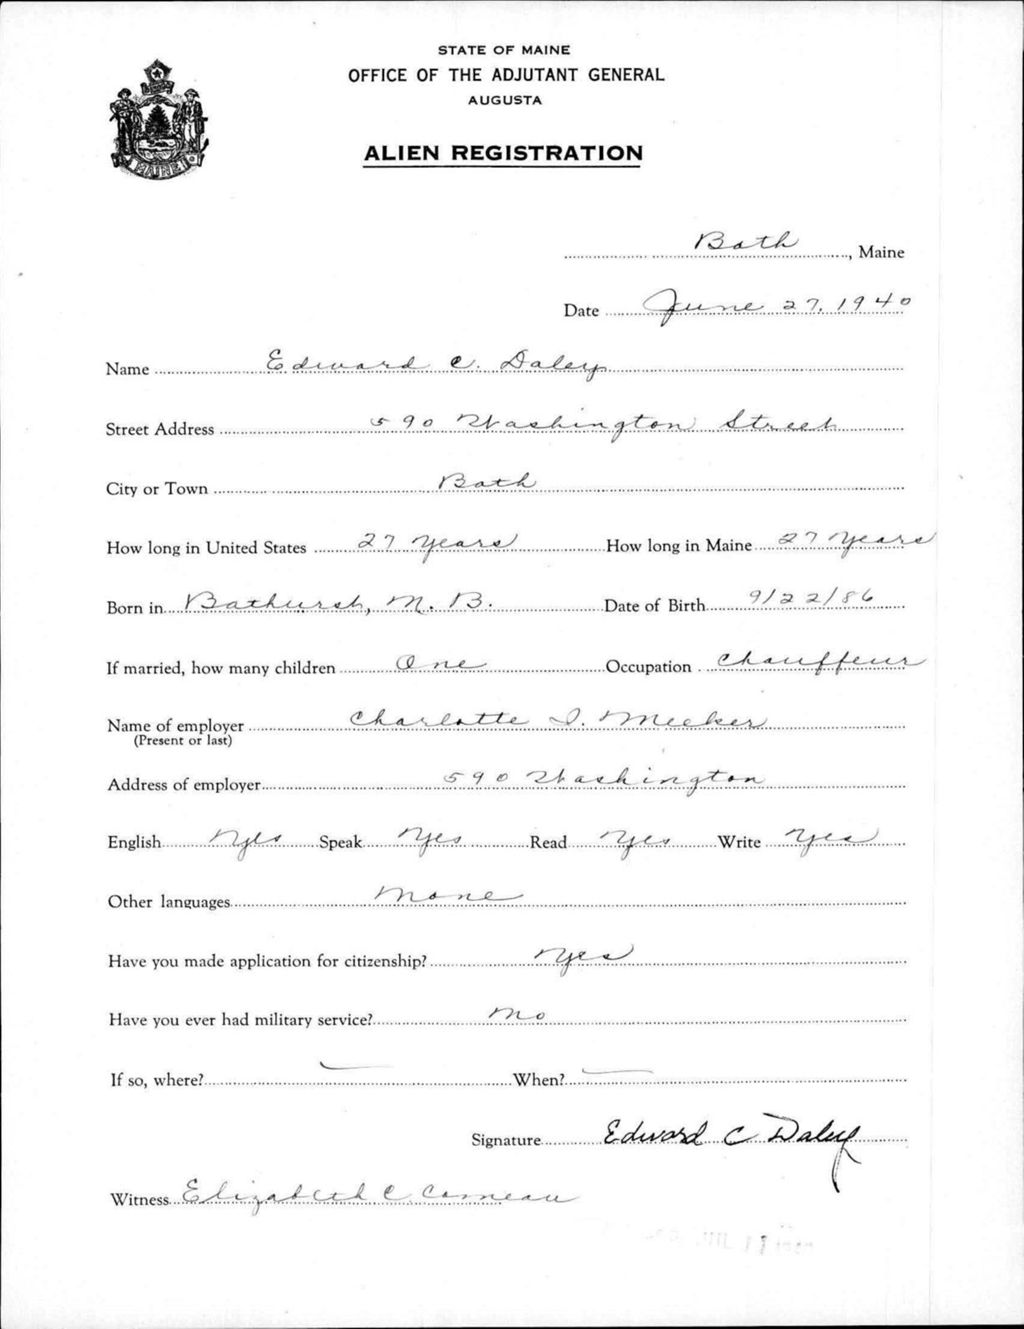 STATE OF MAINE
OFFICE OF THE ADJUTANT GENERAL
AUGUSTA
ALIEN REGISTRATION
MAINE
Bath, Maine
Date June 27, 1940
Name Edward C. Daley
Street Address 590 Washington Street
City or Town Bath
How long in United States 27 Years How long in Maine 27 Years
Born in Bathurst, N. B. Date of Birth 9/22/86
If married, how many children One Occupation Chauffeur
Name of employer Charlotte I. Meeker
(Present or last)
Address of employer 590 Washington
English Yes Speak Yes Read Yes Write Yes
Other languages None
Have you made application for citizenship? Yes
Have you ever had military service? No
If so, where? — When? —
Signature Edward C Daley
Witness Elizabeth C Comeau